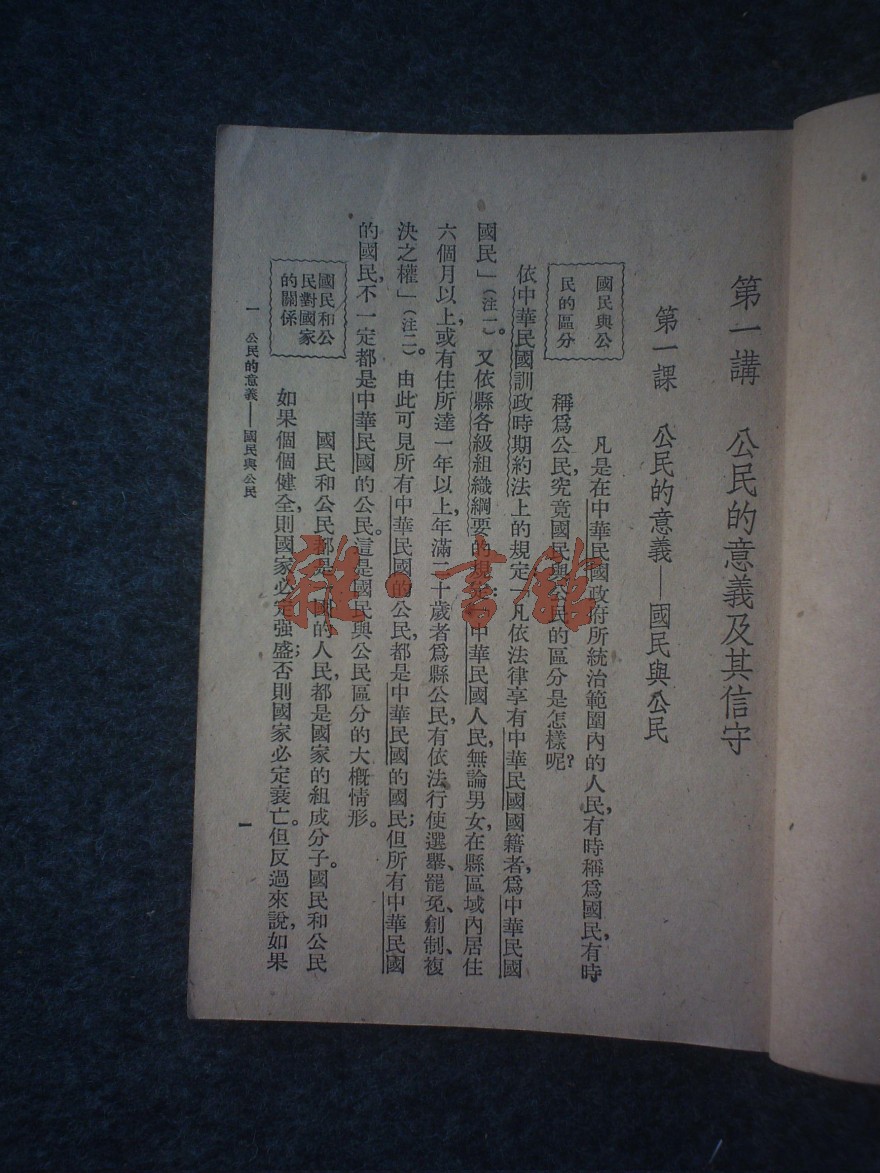 第一講　公民的意義及其信守
第一課　公民的意義——國民與公民
國民與公
民的區分
凡是在中華民國政府所統治範圍內的人民，有時稱爲國民，有時
稱爲公民，究竟國民與公民的區分是怎樣呢？
依中華民國訓政時期約法上的規定「凡依法律享有中華民國國籍者，爲中華民國
國民」（注一）。又依縣各級組織綱要的規定：「中華民國人民，無論男女，在縣區域內居住
六個月以上，或有住所達一年以上，年滿二十歲者爲縣公民，有依法行使選舉、罷免、創制、複
決之權」（注二）。由此可見所有中華民國的公民，都是中華民國的國民；但所有中華民國
的國民，不一定都是中華民國的公民。這是國民與公民區分的大概情形。
國民和公
民對國家
的關係
國民和公民都是國的人民，都是國家的組成分子。國民和公民
如果個個健全，則國家必定强盛；否則國家必定衰亡。但反過來說，如果
一　公民的意義——國民與公民
一
雜·書館